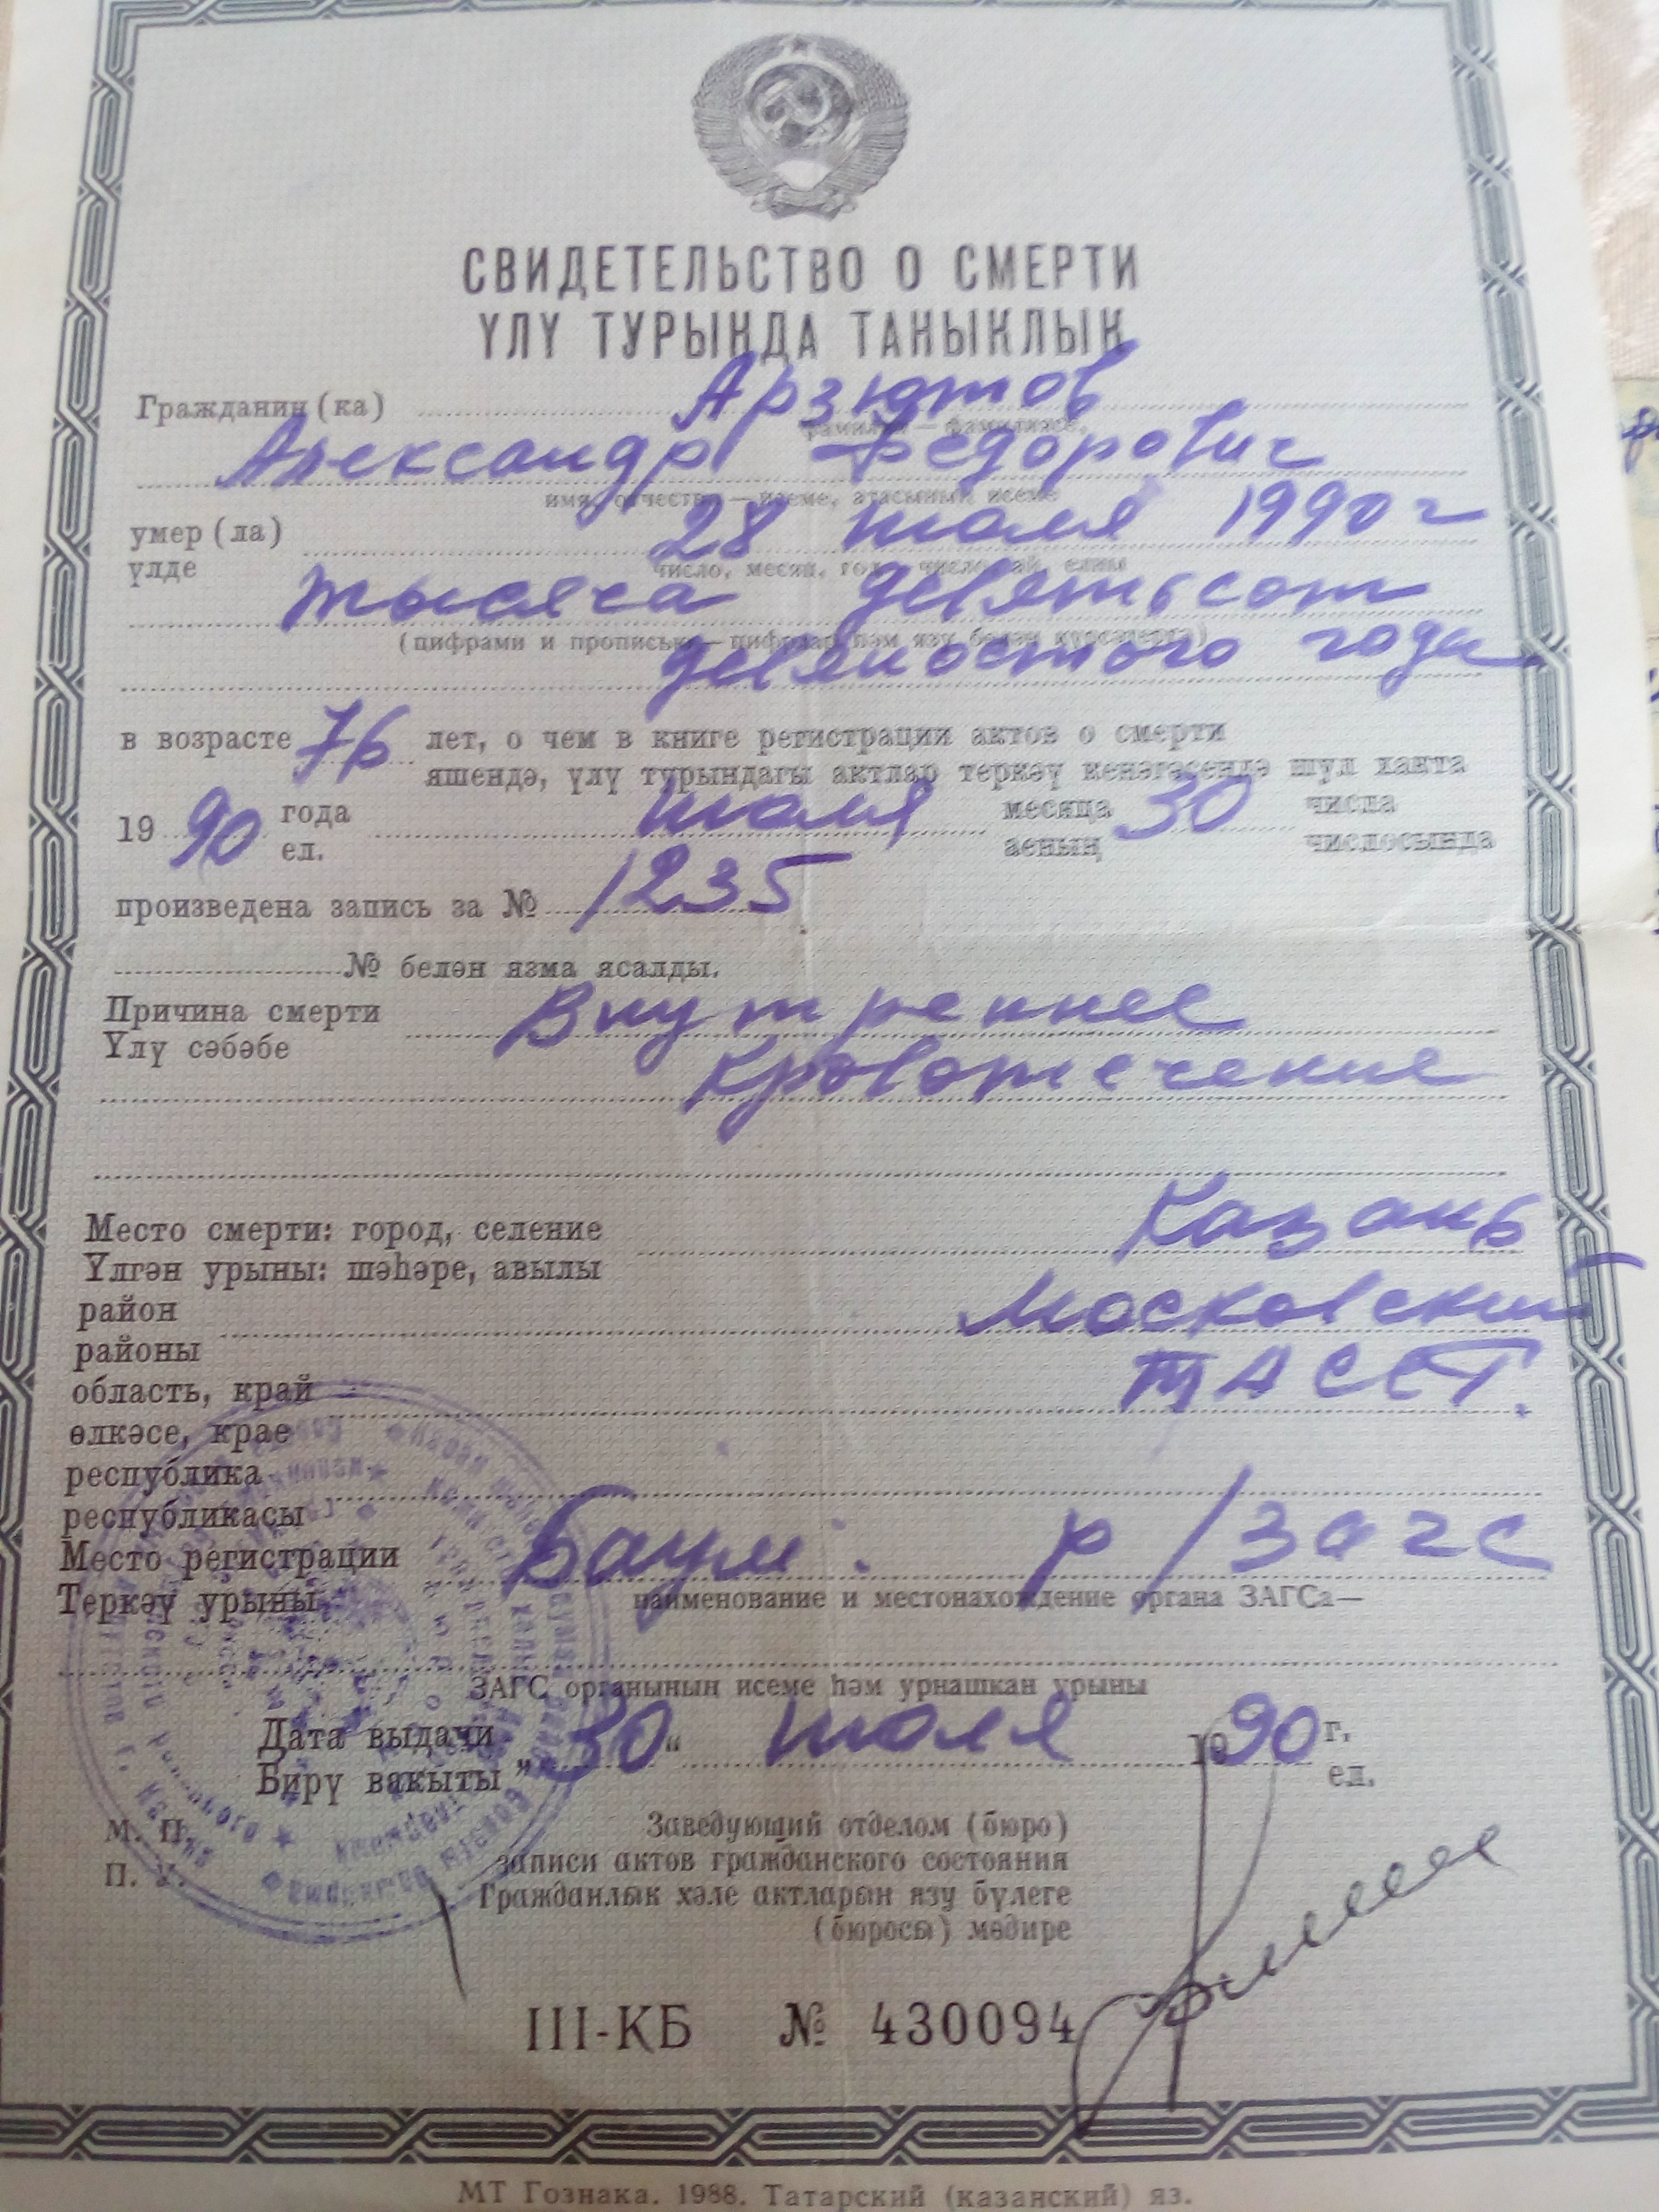 СВИДЕТЕЛЬСТВО О СМЕРТИ
ҮЛҮ ТУРЫНДА ТАНЫКЛЫК
Гражданин(ка) Арзютов
фамилия — фамилиясе,
Александр Федорович
имя, отчество — исеме, атасының исеме
умер(ла) 28 июля 1990 г
үлде
число, месяц, год — число, ай, елны
тысяча девятьсот
(цифрами и прописью — цифрлар һәм язу белән күрсәтергә)
девяностого года
в возрасте 76 лет, о чем в книге регистрации актов о смерти
яшендә, үлү турындагы актлар теркәү кенәгәсендә шул хакта
1990 года июля месяца 30 числа
ел. аеның числосында
произведена запись за № 1235
№ белән язма ясалды.
Причина смерти Внутреннее
Үлү сәбәбе
кровотечение
Место смерти: город, селение Казань
Үлгән урыны: шәһәре, авылы
район Московский
районы
область, край ТАССР.
өлкәсе, крае
республика
республикасы
Место регистрации Баум. р/загс
Теркәү урыны
наименование и местонахождение органа ЗАГСа—
ЗАГС органының исеме һәм урнашкан урыны
Дата выдачи „30“ июля 1990 г.
Бирү вакыты ел.
М. П.
П. У.
Заведующий отделом (бюро)
записи актов гражданского состояния
Гражданлык хәле актларын язу бүлеге
(бюросы) мөдире
III-КБ № 430094
МТ Гознака. 1988. Татарский (казанский) яз.